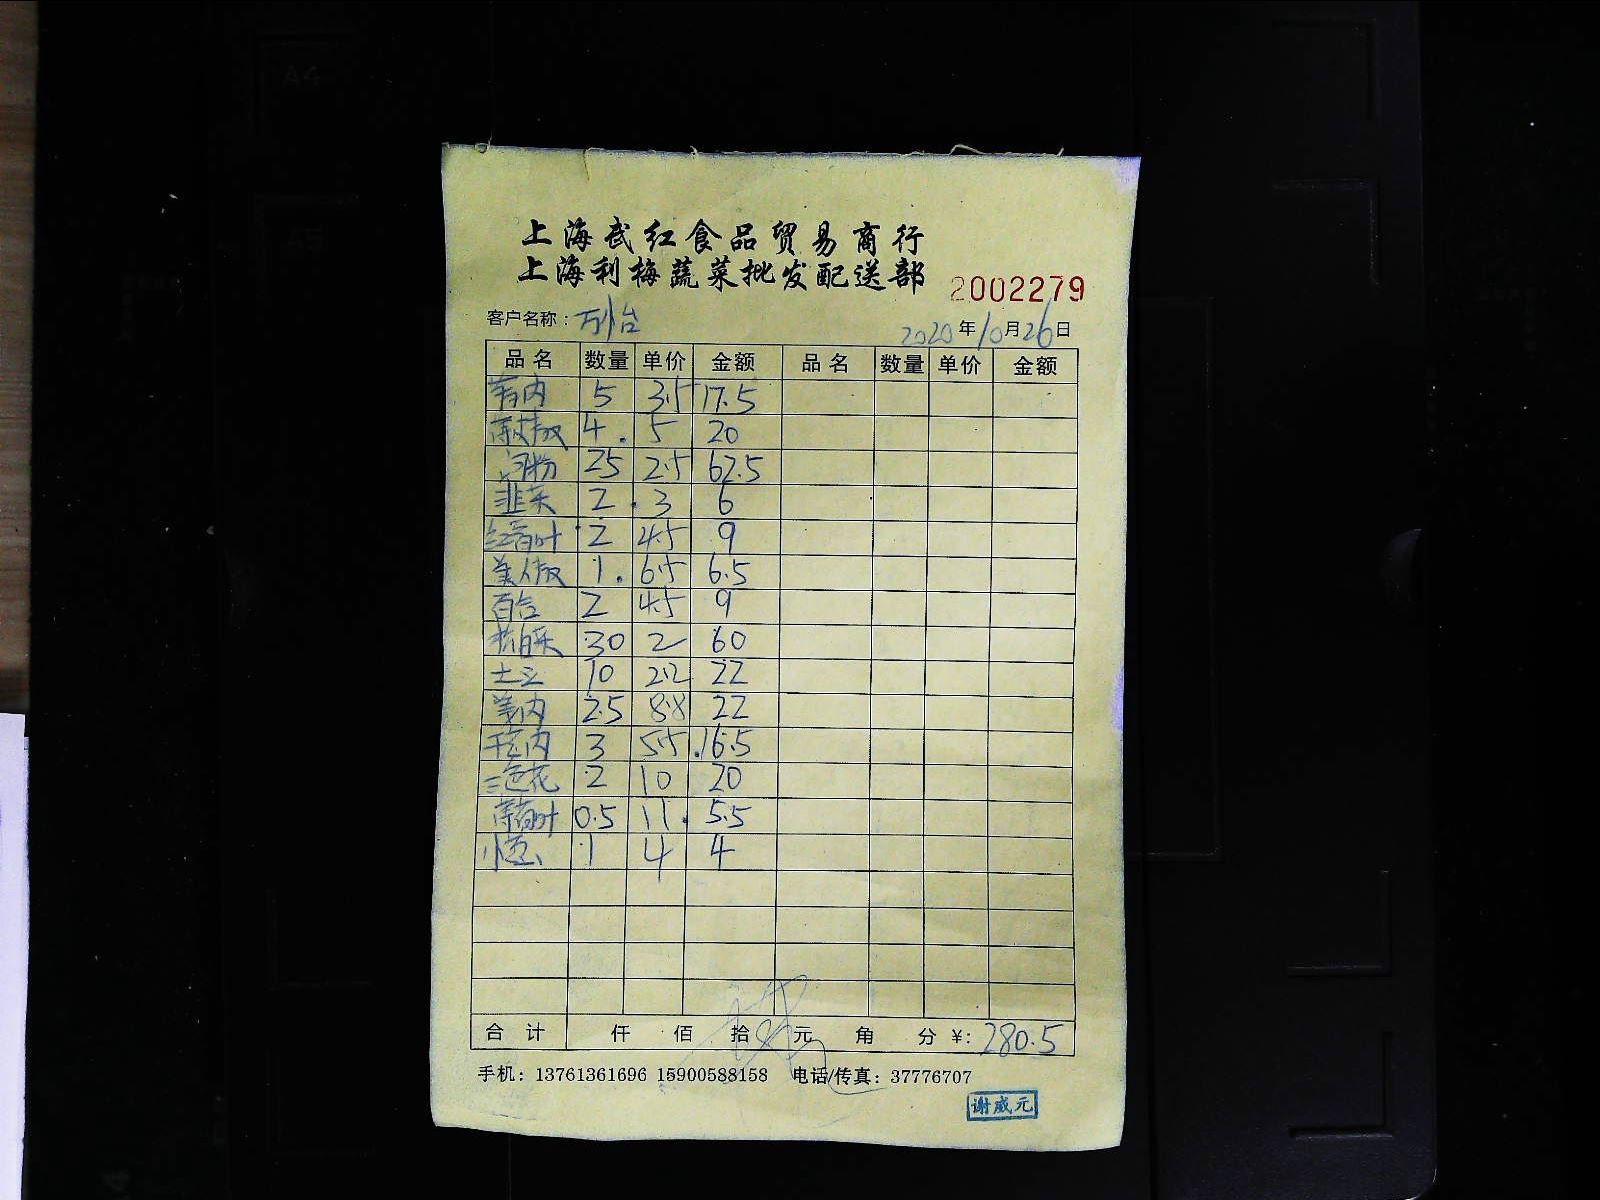 A4
A5
上海武红食品贸易商行
上海利梅蔬菜批发配送部
2002279
客户名称：万小台 2020年10月26日
品名 数量 单价 金额 品名 数量 单价 金额
5 3.5 17.5
4. 5 20
河粉 25 2.5 62.5
韭菜 2. 3 6
2 4.5 9
美人椒 1. 6.5 6.5
百合 2 4.5 9
30 2 60
土豆 10 2.2 22
2.5 8.8 22
3 5.5 16.5
三色花 2 10 20
薄荷叶 0.5 11. 5.5
小葱 1 4 4
合计 仟 佰 拾 元 角 分 ¥: 280.5
手机：13761361696 15900588158 电话/传真：37776707
谢威元